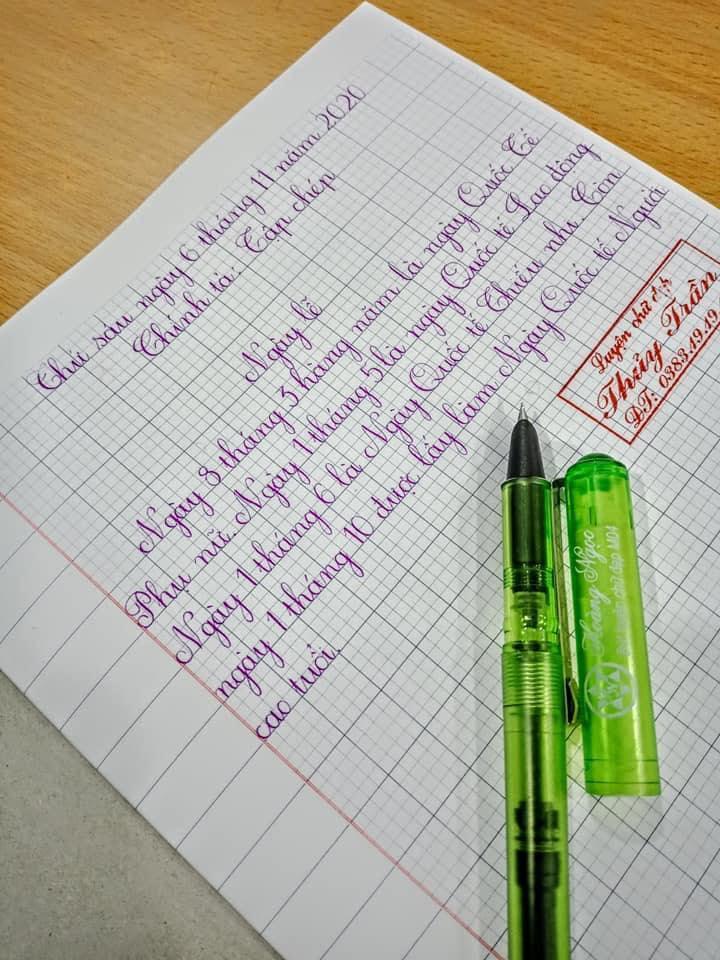 Thứ sáu ngày 6 tháng 11 năm 2020
Chính tả: Tập chép
Ngày lễ
Ngày 8 tháng 3 hàng năm là ngày Quốc Tế
Phụ nữ. Ngày 1 tháng 5 là ngày Quốc tế Lao động
Ngày 1 tháng 6 là Ngày Quốc tế Thiếu nhi. Còn
ngày 1 tháng 10 được lấy làm Ngày Quốc tế Người
cao tuổi.
Luyện chữ đẹp
Thủy Trần
ĐT: 0383.19.49
Hoàng Ngọc
Bút luyện chữ đẹp M04